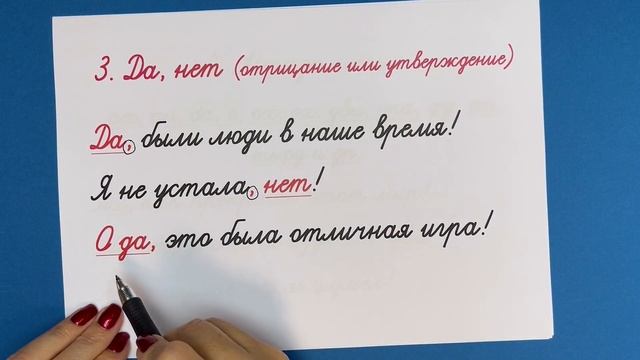 3. Да, нет (отрицание или утверждение)
Да, были люди в наше время!
Я не устала, нет!
О да, это была отличная игра!